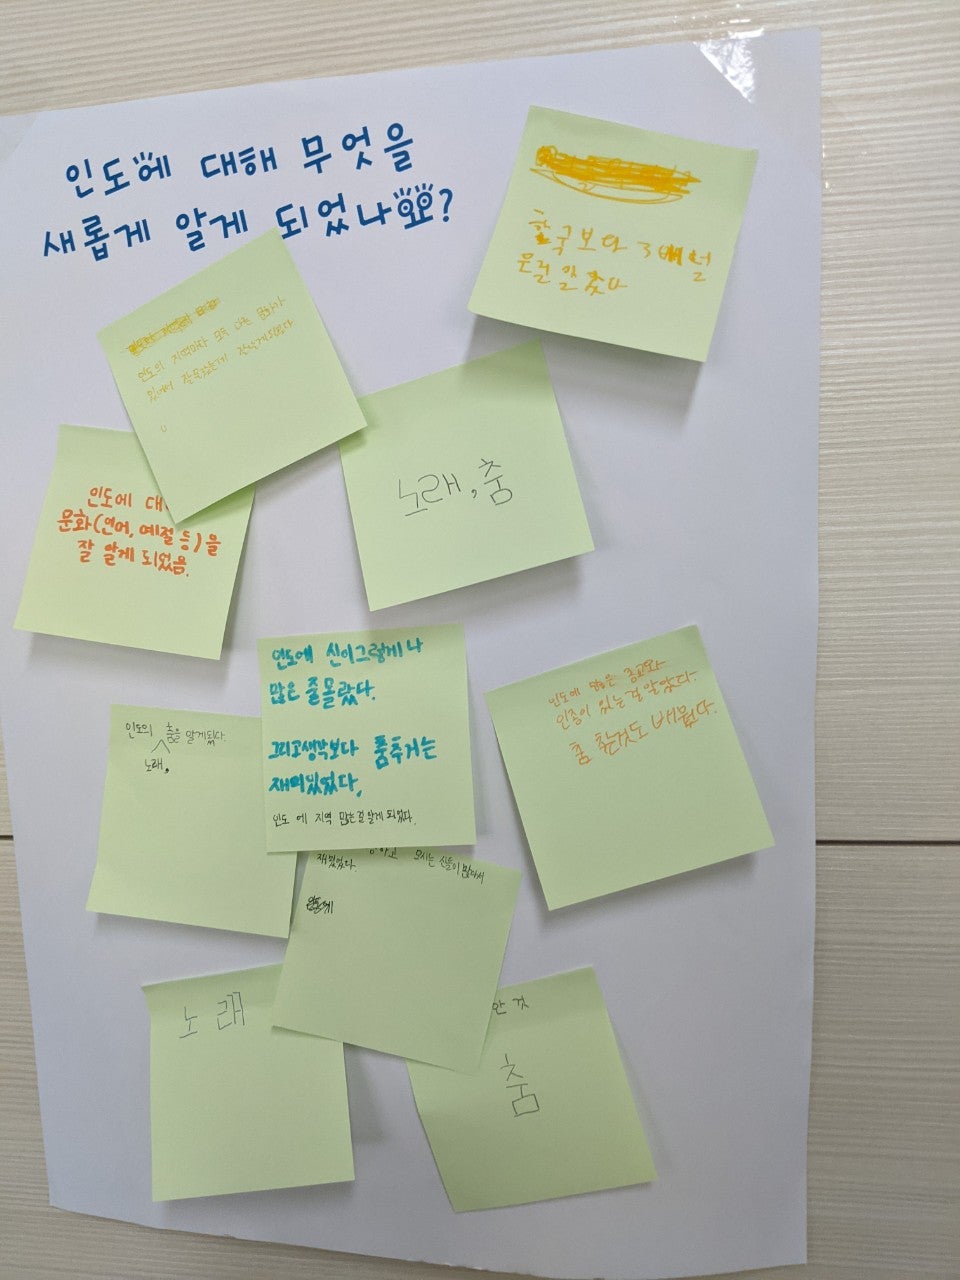 인도에 대해 무엇을
새롭게 알게 되었나요?
한국보다 3배 넓
은걸 알았다
인도의 지역마다 모두 다른 문화가
있어서 알게되었다
노래, 춤
인도에 대
문화(언어, 예절 등)을
잘 알게 되었음.
인도에 신이그렇게나
많은 줄몰랐다.
그리고생각보다 춤추거는
재미있었다.
인도 에 지역 많은걸 알게 되었다.
인도에 많은 종교와
인종이 있는걸 알았다
춤 춘것도 배웠다.
인도의 춤을 알게됬다.
노래,
재밌었다.
모시는 신들이 많다서
노래
안 것
춤